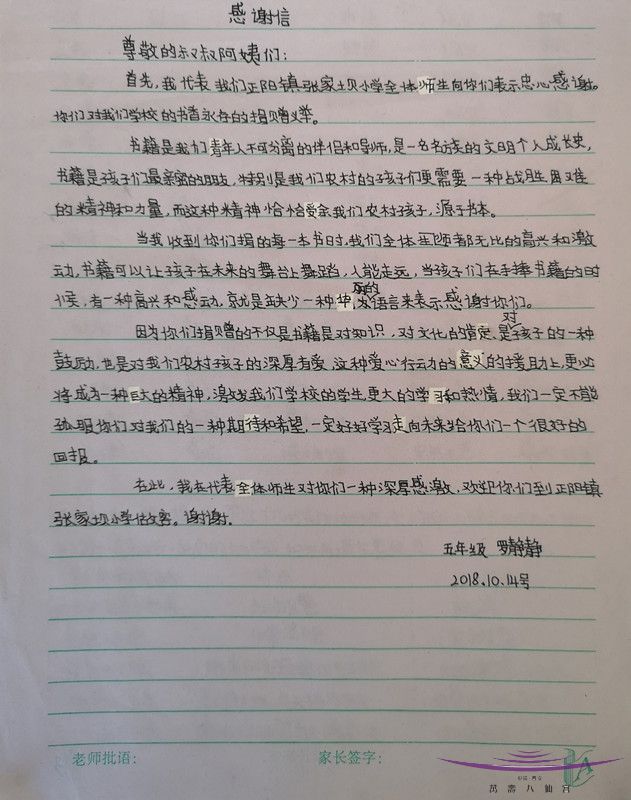 感谢信
尊敬的叔叔阿姨们：
首先，我代表我们正阳镇张家坝小学全体师生向你们表示忠心感谢。
你们对我们学校的书香永存的捐赠义举。
书籍是我们青年人不可分离的伴侣和导师，是一名名族的文明个人成长史，
书籍是孩子们最亲密的朋友，特别是我们农村的孩子们更需要一种战胜困难
的精神和力量，而这种精神恰恰受余我们农村孩子，源于书本。
当我收到你们捐的每一本书时，我们全体师都无比的高兴和激
动，书籍可以让孩子在未来的舞台上舞蹈，人能走远，当孩子们在手捧书籍的时
候，有一种高兴和感动，就是缺少一种华丽的发语言来表示感谢你们。
因为你们捐赠的不仅是书籍是对知识，对文化的肯定，是对孩子的一种
鼓励，也是对我们农村孩子的深厚有爱，这种爱心行动的意义的捐助上，更必
将成为一种巨大的精神，激发我们学校的学生更大的学习和热情，我们一定不能
你们对我们的一种期待和希望，一定好好学习走向未来给你们一个很好的
回报。
在此，我在代表全体师生对你们一种深厚感激，欢迎你们到正阳镇
张家坝小学做客。谢谢。
五年级 罗静静
2018.10.14号
老师批语： 家长签字：
中国·西安
萬壽八仙宮